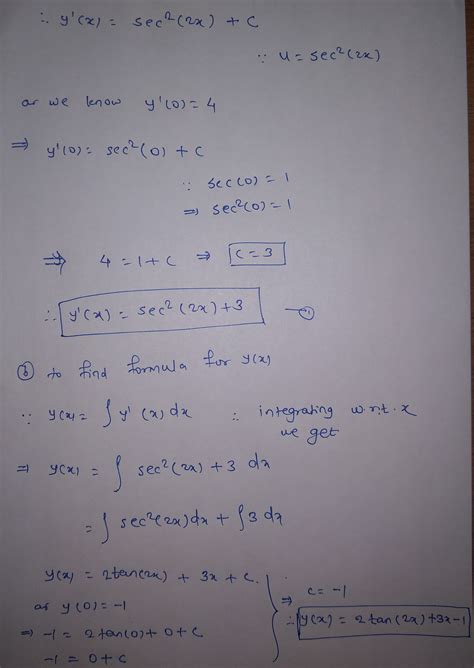 ∴ y'(x) = sec²(2x) + c
∵ u = sec²(2x)
as we know y'(0) = 4
⇒ y'(0) = sec²(0) + c
∵ sec(0) = 1
⇒ sec²(0) = 1
⇒ 4 = 1 + c ⇒ c = 3
∴ y'(x) = sec²(2x) + 3 — ①
ⓑ to find formula for y(x)
∵ y(x) = ∫ y'(x) dx ∴ integrating w.r.t. x
we get
⇒ y(x) = ∫ sec²(2x) + 3 dx
= ∫ sec²(2x) dx + ∫ 3 dx
y(x) = 2tan(2x) + 3x + c.
as y(0) = -1
⇒ -1 = 2 tan(0) + 0 + c
-1 = 0 + c
⇒ c = -1
∴ y(x) = 2 tan(2x) + 3x - 1